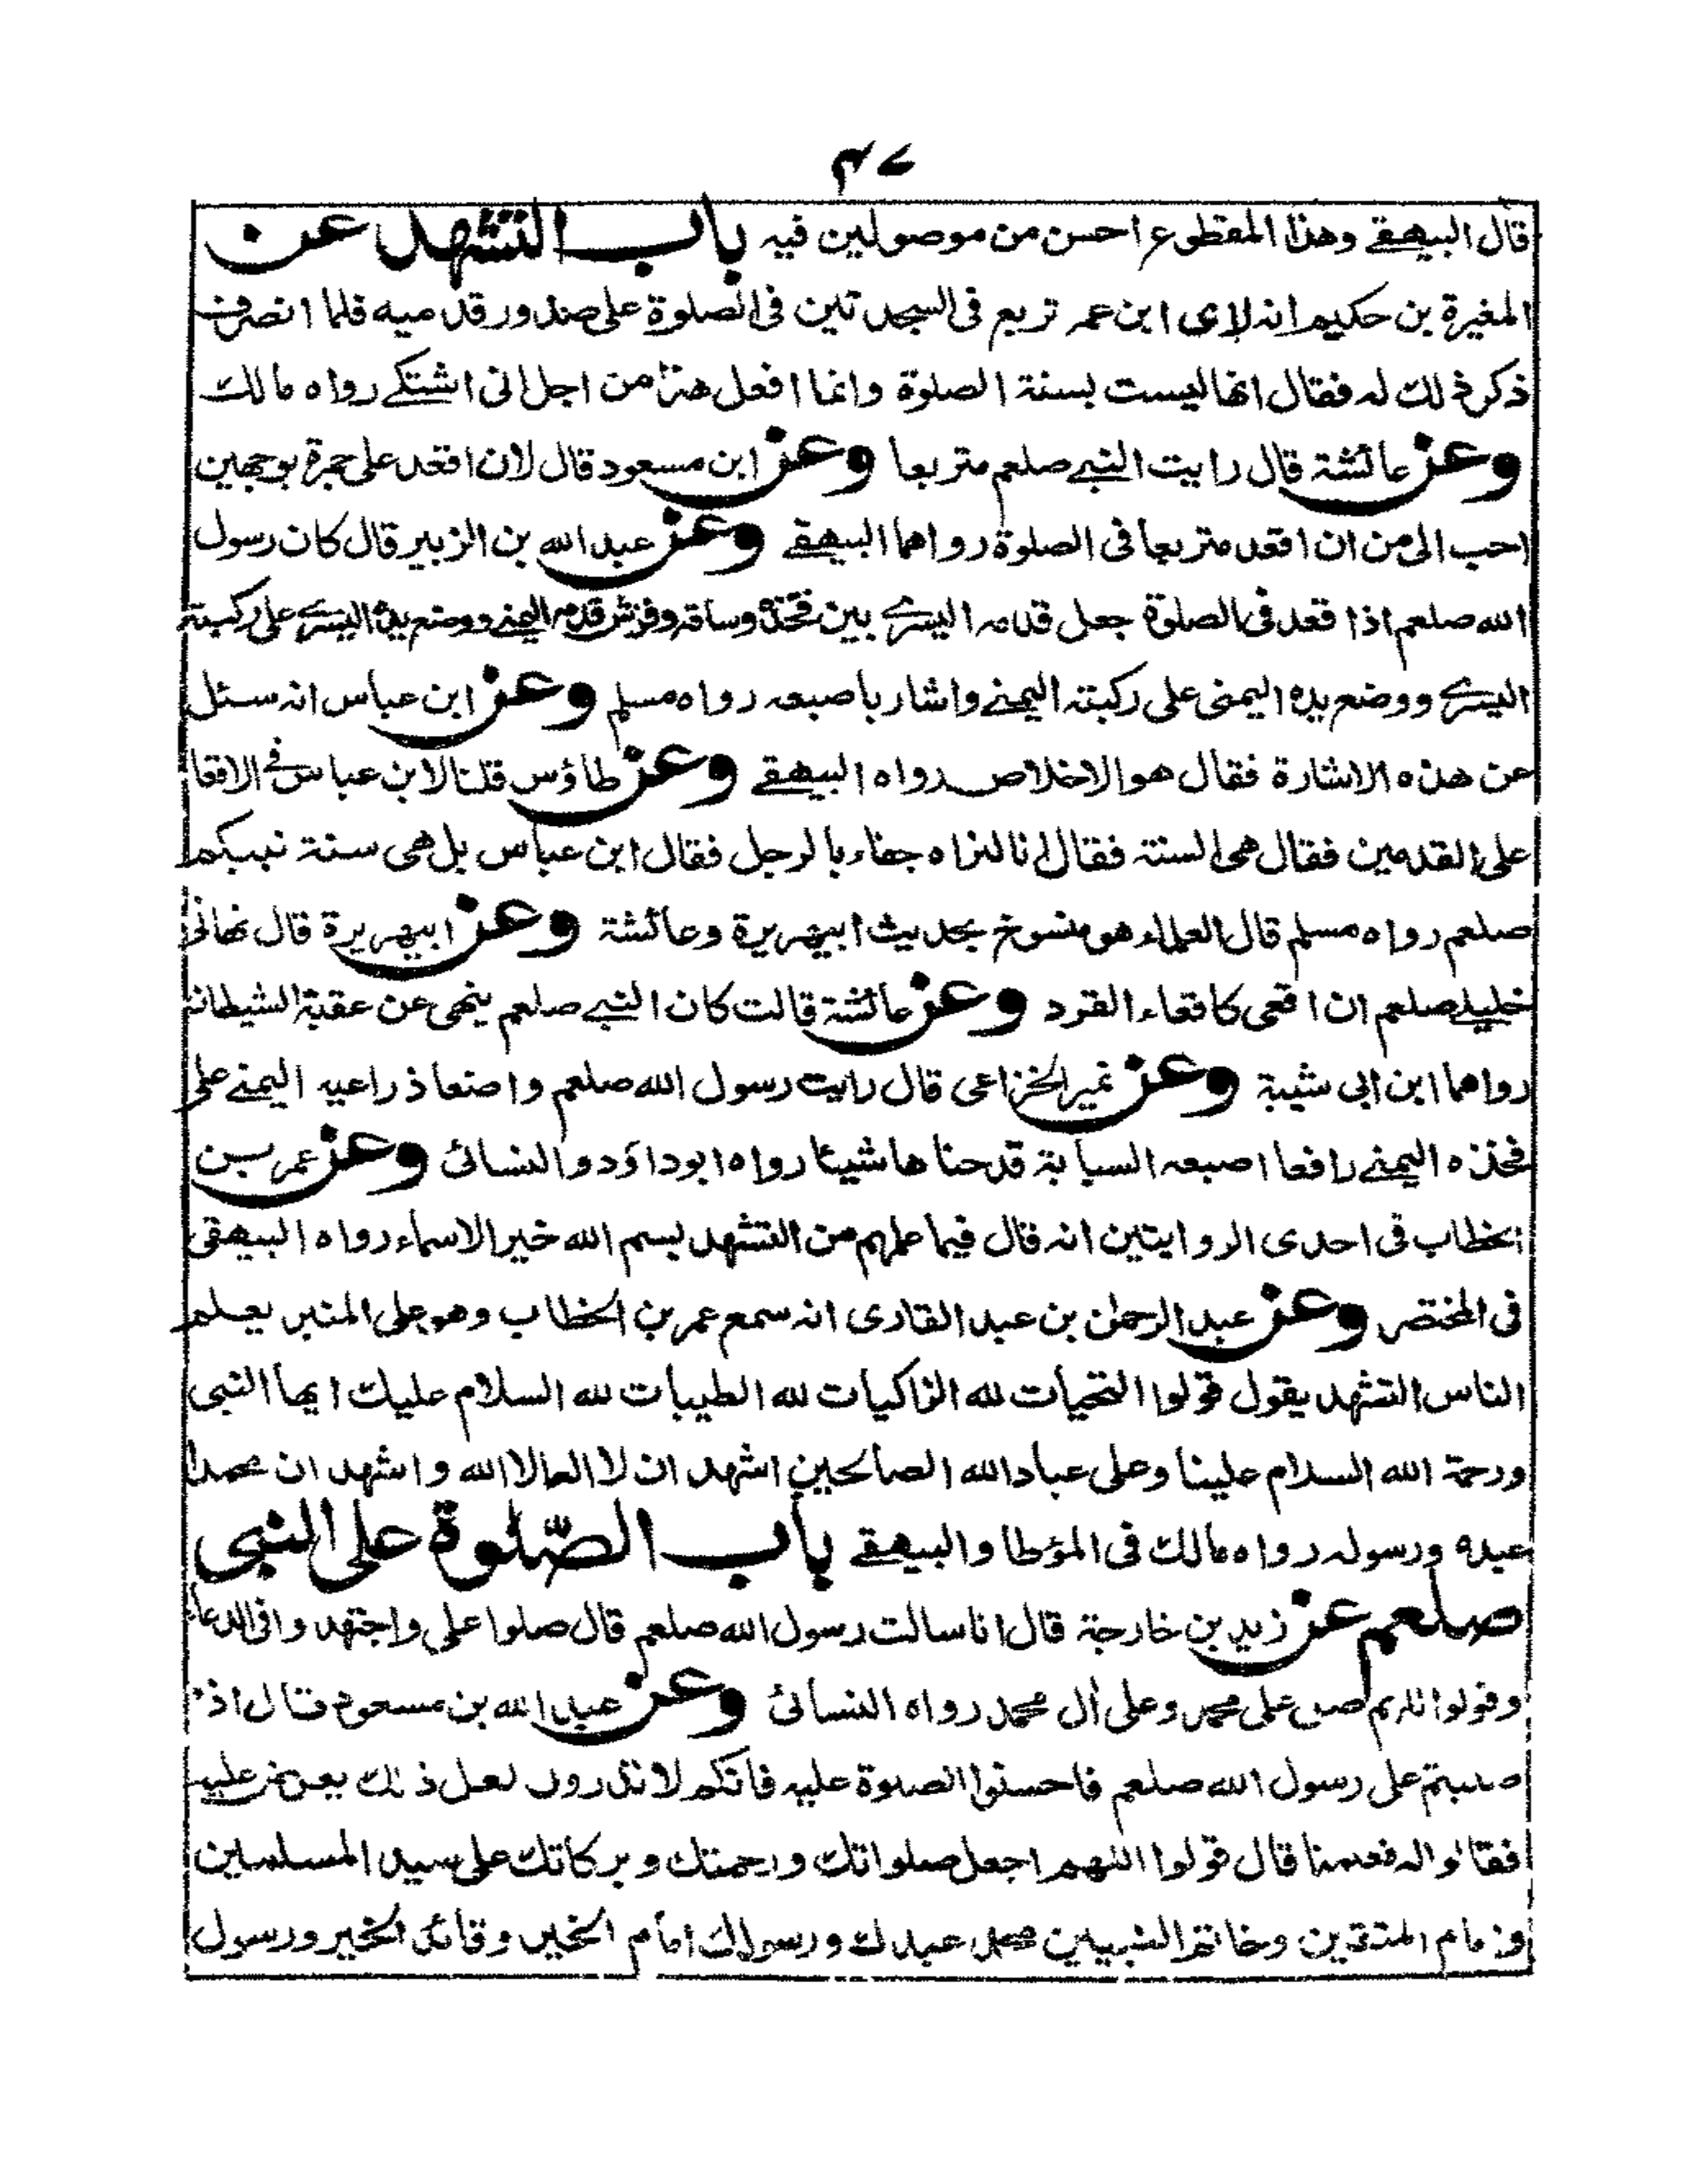 ٤٧
قال البيهقے وهذا المقطوع احسن من موصولين فيه باب التشهد عن
المغيرة بن حكيم انه لاى ابن عمر تربع فى السجدتين فى الصلوة على صدور قدميه فلما انصرف
ذكر ذلك له فقال انها ليست بسنة الصلوة وانما افعل هذا من اجل انى اشتكے رواه مالك
وعن عائشة قال رايت النبے صلعم متربعا وعن ابن مسعود قال لان اقعد على جمرة بوجهين
احب الى من ان اقعد متربعا فى الصلوة رواهما البيهقے وعن عبد الله بن الزبير قال كان رسول
الله صلعم اذا قعد فى الصلوة جعل قدمه اليسرے بين فخذه وساقه وفرش قدمه اليمنے ووضع يده اليسرے على ركبته
اليسرے ووضع يده اليمنى على ركبته اليمنے واشار باصبعه رواه مسلم وعن ابن عباس انه سئل
عن هذه الاشارة فقال هو الاخلاص رواه البيهقے وعن طاؤس قلنا لابن عباس فے الاقعا
على القدمين فقال هى السنة فقال انا لنراه جفاء بالرجل فقال ابن عباس بل هى سنة نبيكم
صلعم رواه مسلم قال العلماء هو منسوخ بحديث ابيهريرة وعائشة وعن ابيهريرة قال نهانى
خليلے صلعم ان اقعى كاقعاء القرد وعن عائشة قالت كان النبے صلعم ينهى عن عقبة الشيطان
رواهما ابن ابى شيبة وعن نمير الخزاعى قال رايت رسول الله صلعم واضعا ذراعيه اليمنے على
فخذه اليمنے رافعا اصبعه السبابة قد حناها شيئا رواه ابو داؤد والنسائ وعن عمر بن
الخطاب فى احدى الروايتين انه قال فيما علمهم من التشهد بسم الله خير الاسماء رواه البيهقى
فى المختصر وعن عبد الرحمٰن بن عبد القارى انه سمع عمر بن الخطاب وهو على المنبر يعلم
الناس التشهد يقول قولوا التحيات لله الزاكيات لله الطيبات لله السلام عليك ايها النبى
ورحمة الله السلام علينا وعلى عباد الله الصالحين اشهد ان لا اله الا الله واشهد ان محمدا
عبده ورسوله رواه مالك فى المؤطا والبيهقے باب الصّلوة على النبى
صلعم عن زيد بن خارجة قال انا سالت رسول الله صلعم قال صلوا على واجتهدوا فى الدعاء
وقولوا اللهم صل على محمد وعلى اٰل محمد رواه النسائ وعن عبد الله بن مسعود قال اذا
صليتم على رسول الله صلعم فاحسنوا الصلوة عليه فانكم لا تدرون لعل ذلك يعرض عليه
فقالوا له فعلمنا قال قولوا اللهم اجعل صلواتك ورحمتك وبركاتك على سيد المسلمين
وامام المتقين وخاتم النبيين محمد عبدك ورسولك امام الخير وقائد الخير ورسول